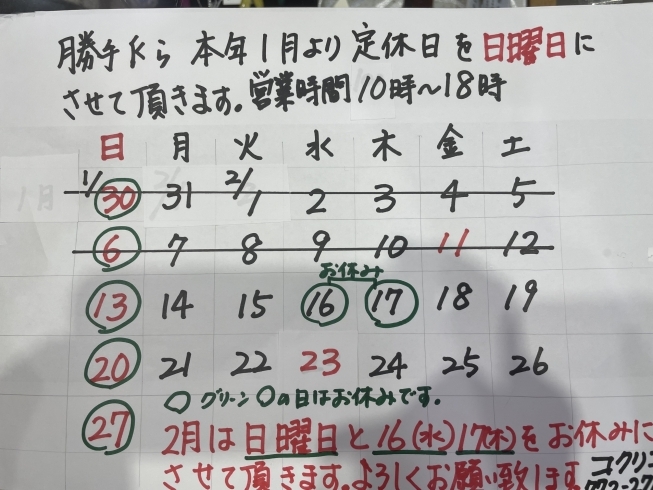 勝手ながら 本年1月より定休日を日曜日に
させて頂きます。営業時間10時～18時
日 月 火 水 木 金 土
1/30 31 2/1 2 3 4 5
6 7 8 9 10 11 12
お休み
13 14 15 16 17 18 19
20 21 22 23 24 25 26
○ グリーン○の日はお休みです。
27
2月は日曜日と16(水)17(木)をお休みに
させて頂きます。よろしくお願い致します。
コクリ